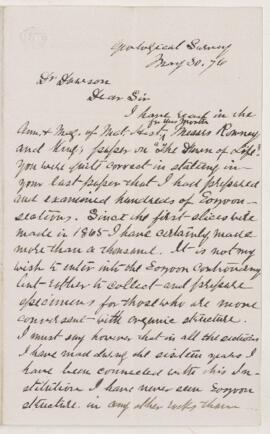 Geological Survey
May 30. 76
Dr Dawson
Dear Sir
I have read in the
for this month
Ann. & Mag. of Nat. Hist. Messrs Rowney
and King's paper on "The Dawn of Life".
You were quite correct in stating in
your last paper that I had prepared
and examined hundreds of Eozoon
sections. Since the first slices were
made in 1865 I have certainly made
more than a thousand. It is not my
wish to enter into the Eozoon controversy
but rather to collect and prepare
specimens for those who are more
conversant with organic structure.
I must say however that in all the sections
I have made during the sixteen years I
have been connected with this In-
stitution I have never seen Eozoon
structure in any other rocks than